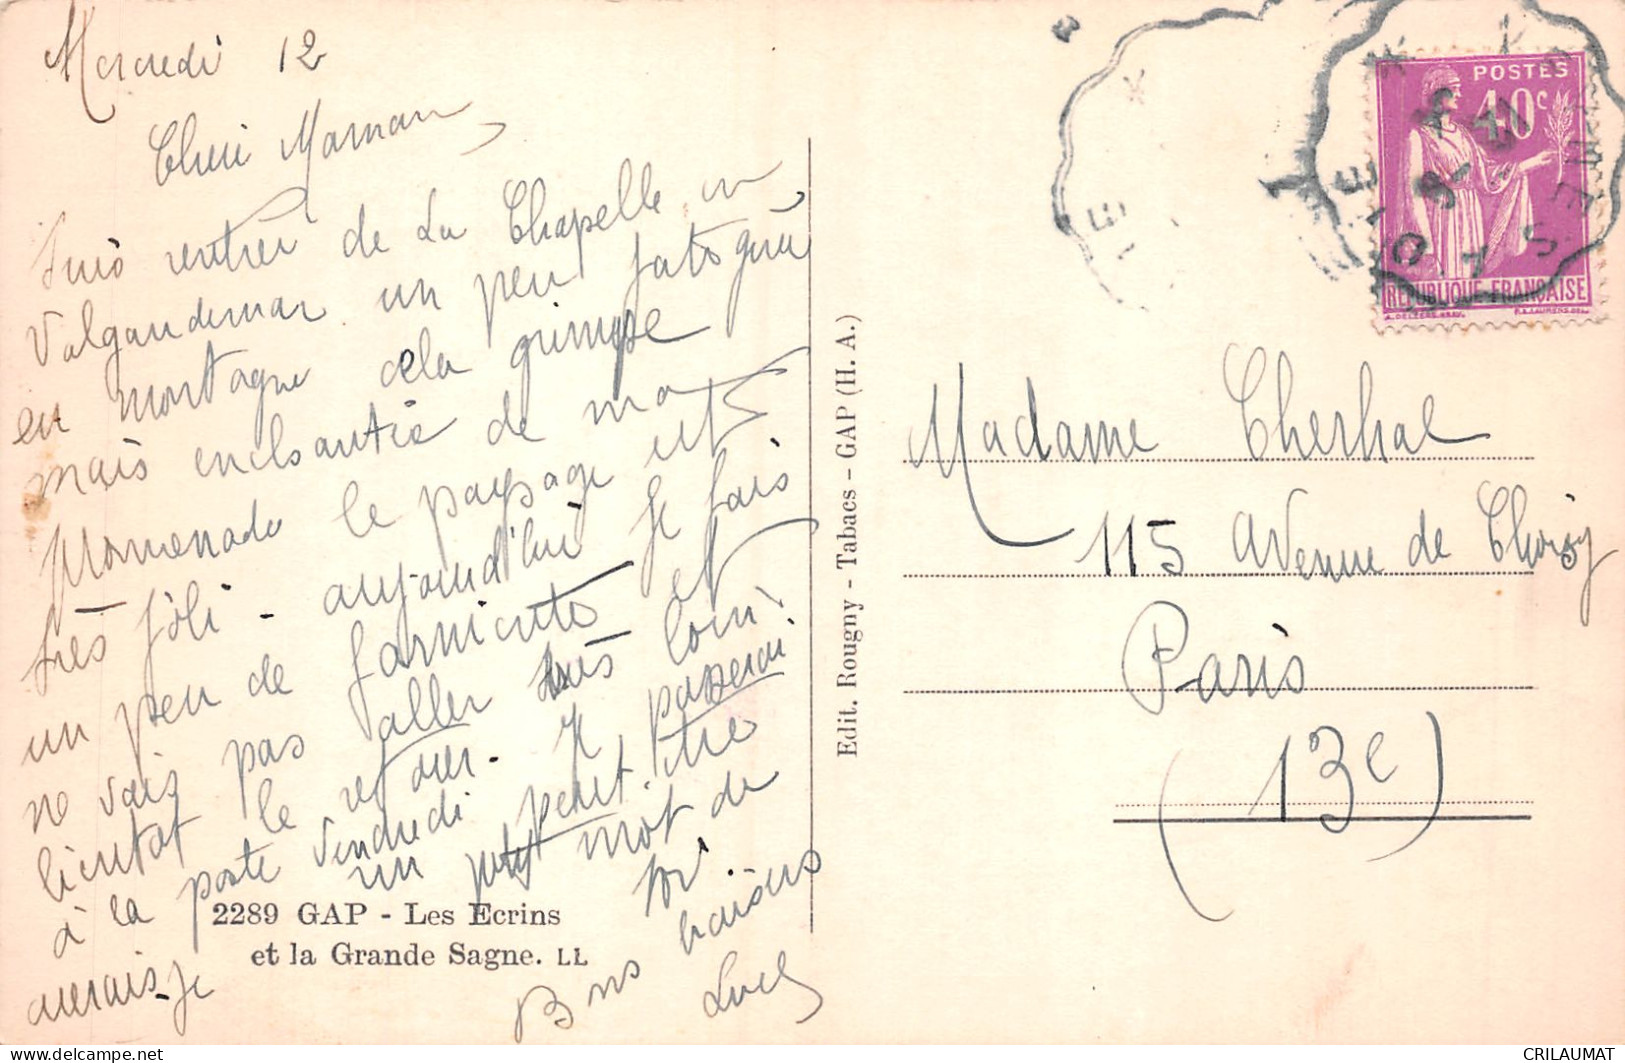 Mercredi 12
Cheri Maman
Suis rentrer de La Chapelle en
Valgaudemar un peu fatiguer
en montagne cela grimpe
mais enchantée de ma
promenade le paysage est
très joli - aujourd'hui je fais
un peu de farniente et
ne vais pas aller très loin
bientot le retour. Je passerai
à la poste Vendredi peut-être
aurais-je un petit mot de
toi.
Bons baisers
Luce
2289 GAP - Les Ecrins
et la Grande Sagne. LL
Edit. Rougny - Tabacs - GAP (H. A.)
POSTES
40c
REPUBLIQUE FRANÇAISE
Madame Cherhal
115 Avenue de Choisy
Paris
(13e)
CRILAUMAT